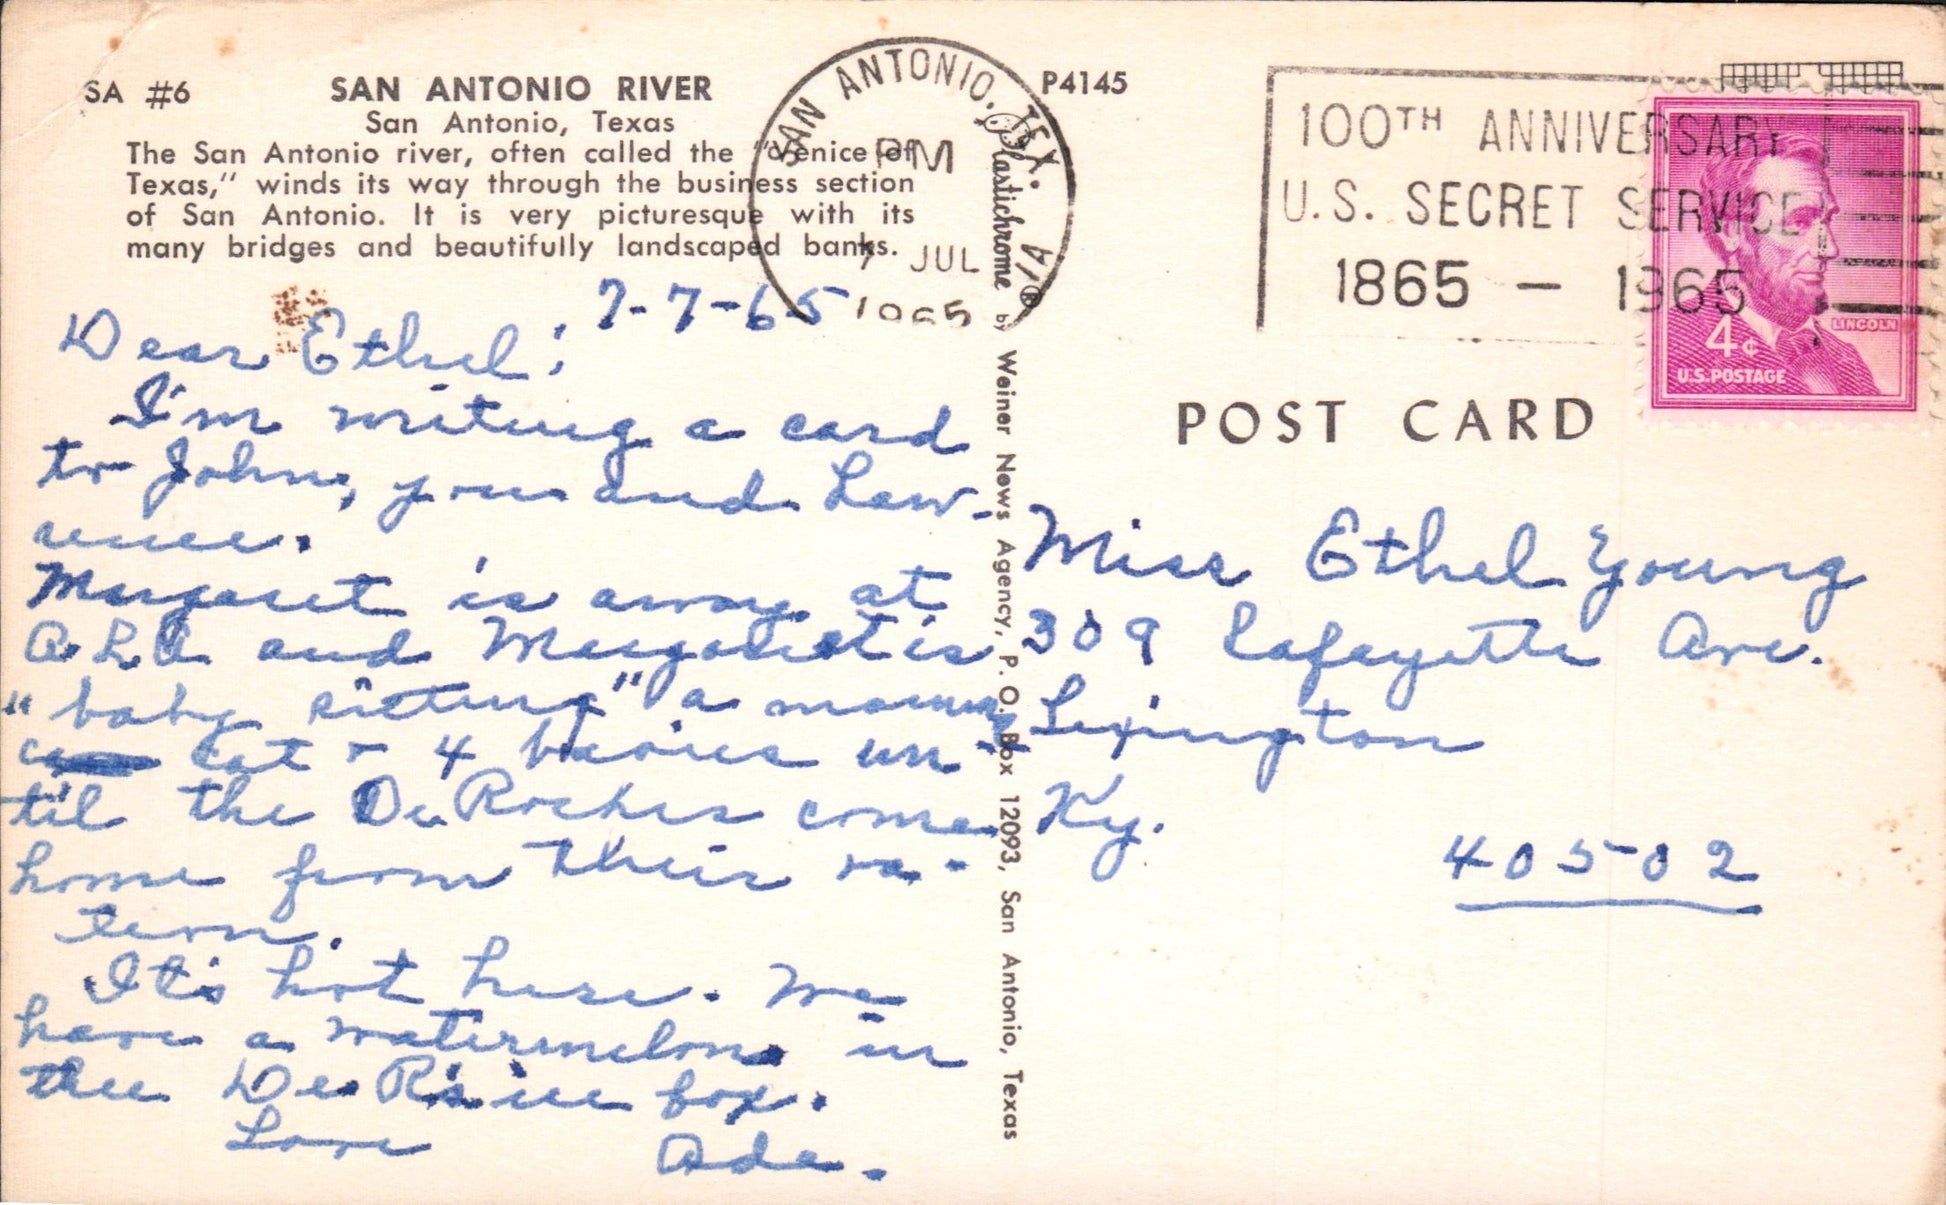 SA #6
SAN ANTONIO RIVER
San Antonio, Texas
The San Antonio river, often called the "Venice of
Texas," winds its way through the business section
of San Antonio. It is very picturesque with its
many bridges and beautifully landscaped banks.
P4145
SAN ANTONIO, TEX.
PM
7 JUL
1965
100TH ANNIVERSARY
U.S. SECRET SERVICE
1865 – 1965
LINCOLN
4¢
U.S. POSTAGE
Plastichrome ® by Weiner News Agency, P. O. Box 12093, San Antonio, Texas
POST CARD
7-7-65
Dear Ethel:
I'm writing a card
to John, you and Law-
rence.
Margaret is away at
A.L.A. and Margaret is
"baby sitting" a
cat + 4 un-
til the De Roches come
home from their va-
It's hot here. We
have a watermelon in
the De R's ice box.
Love
Ada.
Miss Ethel Young
309 Lafayette Ave.
Lexington
Ky.
40502